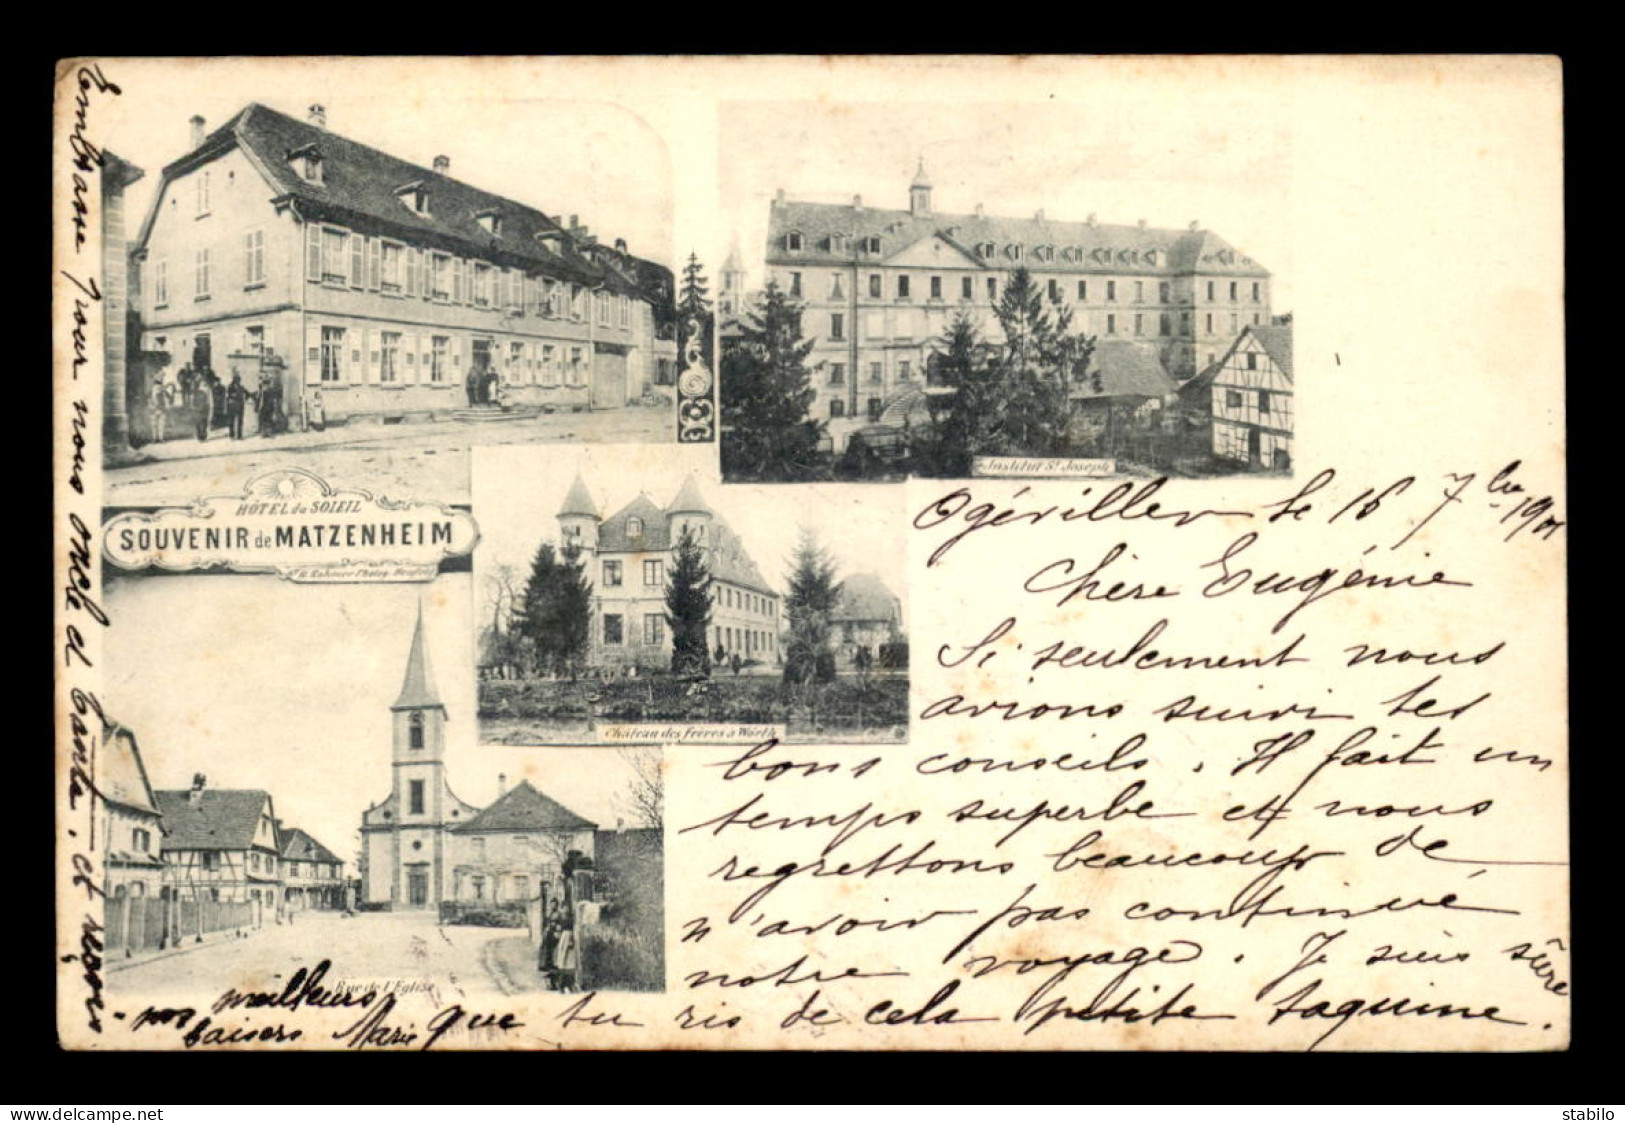 HÔTEL du SOLEIL
SOUVENIR de MATZENHEIM
Institut St Joseph
Château des frères à Wörth
Rue de l'Eglise
Ogéviller le 16 7bre 1901
Chère Eugénie
Si seulement nous
avions suivi tes
bons conseils. Il fait un
temps superbe et nous
regrettons beaucoup de
n'avoir pas continué
notre voyage. Je suis sûre
que tu ris de cela petite taquine.
Embrasse pour nous oncle et tante. et reçois
nos meilleurs
baisers Marie
delcampe.net
stabilo